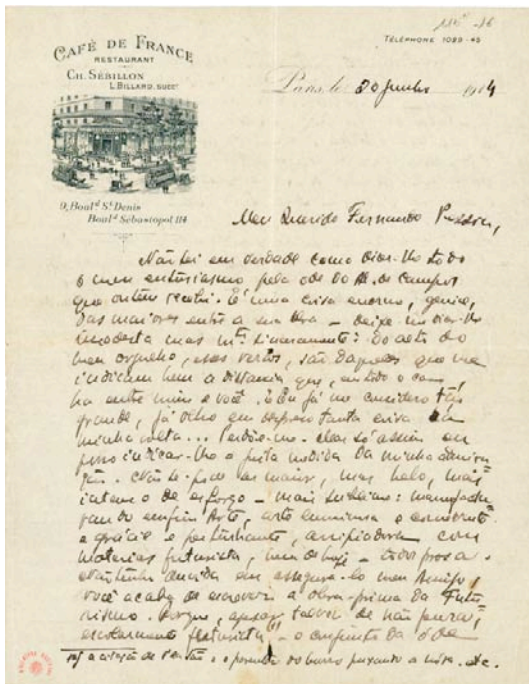 116"-16
TÉLÉPHONE 1029-45
CAFÉ DE FRANCE
RESTAURANT
CH. SÉBILLON
L. BILLARD, SUCCR
Paris, le 20 Junho 1914
9, Boulᵈ Sᵗ Denis
Boulᵈ Sébastopol 114
Meu Querido Fernando Pessoa,
Não sei em verdade como dizer-lho todo
o meu entusiasmo pela ode do Al. de Campos
que ontem recebi. É uma coisa enorme, genial,
das maiores entre a sua obra — deixe-me dizer-lhe
imodesta mas mᵗᵒ sinceramente: Do alto do
meu orgulho, esses versos, são daqueles que me
indicam bem a distancia que, em todo o caso,
ha entre mim e você. E eu já me considero tão
grande, já olho em desprezo tanta coisa em
minha volta... Perdõe-me. Mas só assim eu
posso indicar-lho a justa medida da minha admira
ção. Não se pode ser maior, mais belo, mais
intenso de esforço — mais sublime: manufactu
rando enfim Arte, arte luminosa e comovente
e grácil e perturbante, arripiadora com
materias futuristas, bem de hoje — todo prosa.
Não tenho duvida em assegura-lo meu Amigo,
você acaba de escrever a obra-prima do Futu
rismo. Porque, apesar talvez de não pura,
escolarmente futurista — o conjunto da ode
a citação de Platão, o poente do burro puxando a nora. etc.